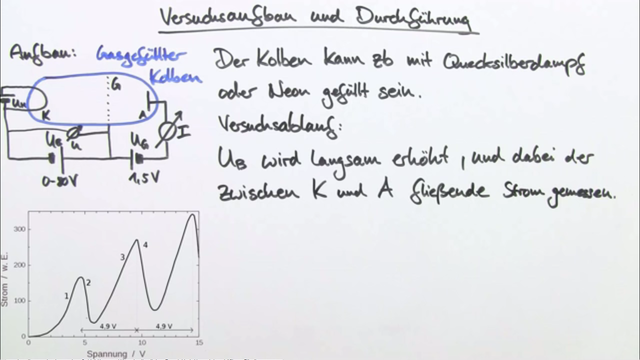 Versuchsaufbau und Durchführung
Aufbau: Gasgefüllter
Kolben
G
K
A
I
U_B
U
U_G
0-80V
1,5V
Der Kolben kann zb mit Quecksilberdampf
oder Neon gefüllt sein.
Versuchsablauf:
U_B wird langsam erhöht, und dabei der
zwischen K und A fließende Strom gemessen.
Strom / w. E.
300
200
100
0
1
2
3
4
4,9 V
4,9 V
0
5
10
15
Spannung / V